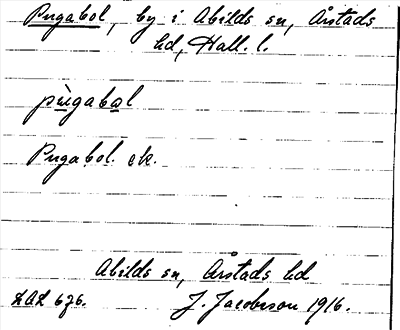 Pugabol, by i Abilds sn, Årstads
hd, Hall. l.
pùgabol
Pugabol. ek.
Abilds sn, Årstads hd
J. Jacobsson 1916.